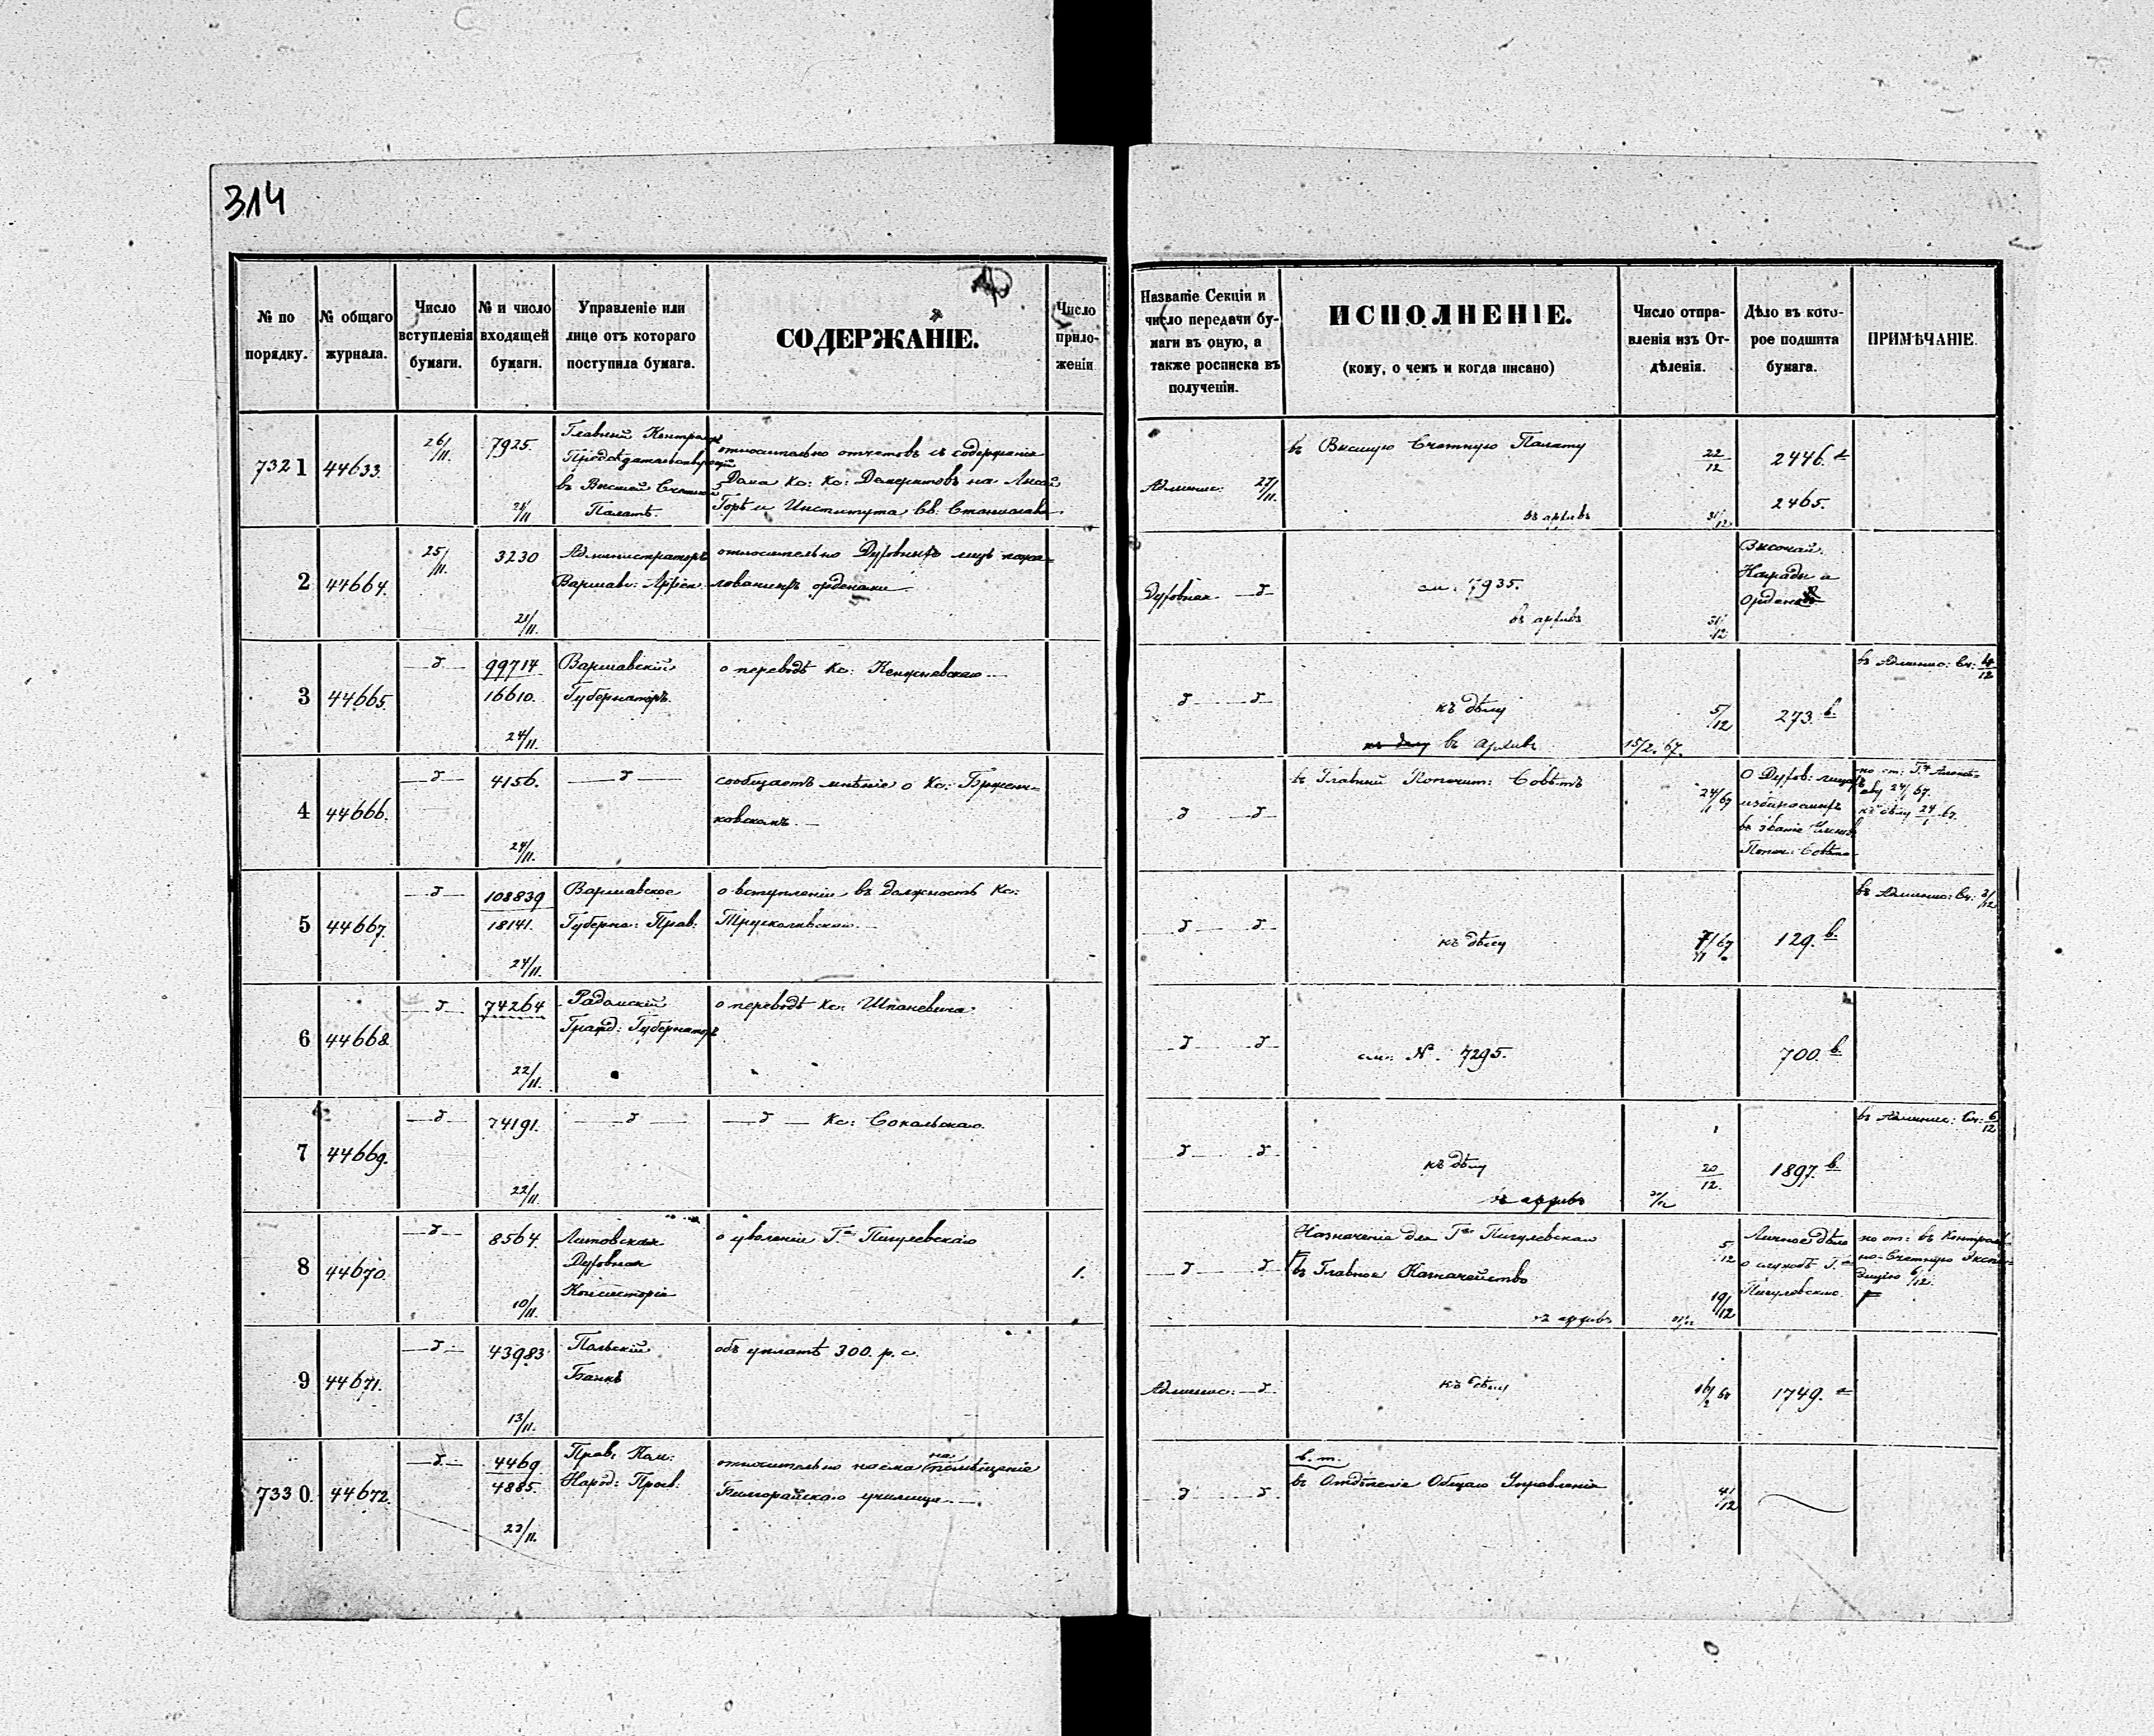 314
№ по порядку.
№ общаго журнала.
Число вступленія бумаги.
№ и число входящей бумаги.
Управленіе или лице отъ котораго поступила бумага.
СОДЕРЖАНІЕ.
Число приложеній
Названіе Секціи и число передачи бумаги въ оную, а также росписка въ полученіи.
ИСПОЛНЕНІЕ.
(кому, о чемъ и когда писано)
Число отправленія изъ Отдѣленія.
Дѣло въ которое подшита бумага.
ПРИМѢЧАНІЕ.
7321 44633. 26/11. 7925.
Главный Контролеръ
Предсѣдательствующій
въ Высшей Счетной
Палатѣ.
относительно отчетовъ
Дома Кс: Кс: Демеритовъ на Лысой
Горѣ и Института Св: Станислава
Админис: 27/11.
въ Высшую Счетную Палату 22/12 2446.
въ архивъ 31/12 2465.
2 44664. 25/11. 3230 21/11.
Администраторъ
Варшавс: Архіеп:
относительно Духовныхъ лицъ пожа-
лованныхъ орденами.
Духовная. д
см. 7935.
въ архивъ 31/12
Высочай.
Награды и
Ордена
3 44665. д 99714
16610. 24/11.
Варшавскій
Губернаторъ.
о переводѣ Кс:
д д
къ дѣлу 5/12 273. в.
въ архивъ 15/2. 67.
въ Админис: Сч: 4/12
4 44666. д 4156. 24/11. д
сообщаетъ мнѣніе о Кс: Бржезин-
ковскомъ.
д д
въ Главный Попечит: Совѣтъ 24/1 67
О Духов: лицахъ
избираемыхъ
въ званіе Членовъ
Попеч: Совѣта
къ дѣлу 24/1 67.
5 44667. д 108839
18141. 24/11.
Варшавское
Губерн: Прав:
о вступленіи въ должность Кс:
Трусколявскаго.
д д
къ дѣлу 7/1 67 129. в.
въ Админис: Сч: 3/12
6 44668. д 74264 22/11.
Радомскій
Гражд: Губернаторъ
о переводѣ Кс: Шпаневича.
д д
см: №. 7295. 700. в.
7 44669. д 74191. 22/11. д
д Кс: Сокольскаго.
д д
къ дѣлу 20/12. 1897. в.
въ архивъ
въ Админис: Сч: 6/12
8 44670. д 8564. 10/11.
Литовская
Духовная
Консисторія
о уволеніи Г. Пигулевскаго 1.
д д
Назначенія для Г. Пигулевскаго 5/12
въ Главное Казначейство 19/12
въ архивъ
Личное дѣло
о службѣ Г.
Пигулевскаго.
по от: въ Контроль-
но-Счетную Экспе-
дицію 6/12.
9 44671. д 43983 13/11.
Польскій
Банкъ
объ уплатѣ 300. р. с.
Админис: д
къ дѣлу 1749.
7330. 44672. д 4469
4885. 23/11.
Прав: Ком:
Народ: Просв.
относительно найма на помѣщеніе
Билгорайскаго училища.
д д
в. т.
въ Отдѣленіе Общаго Управленія 4/12